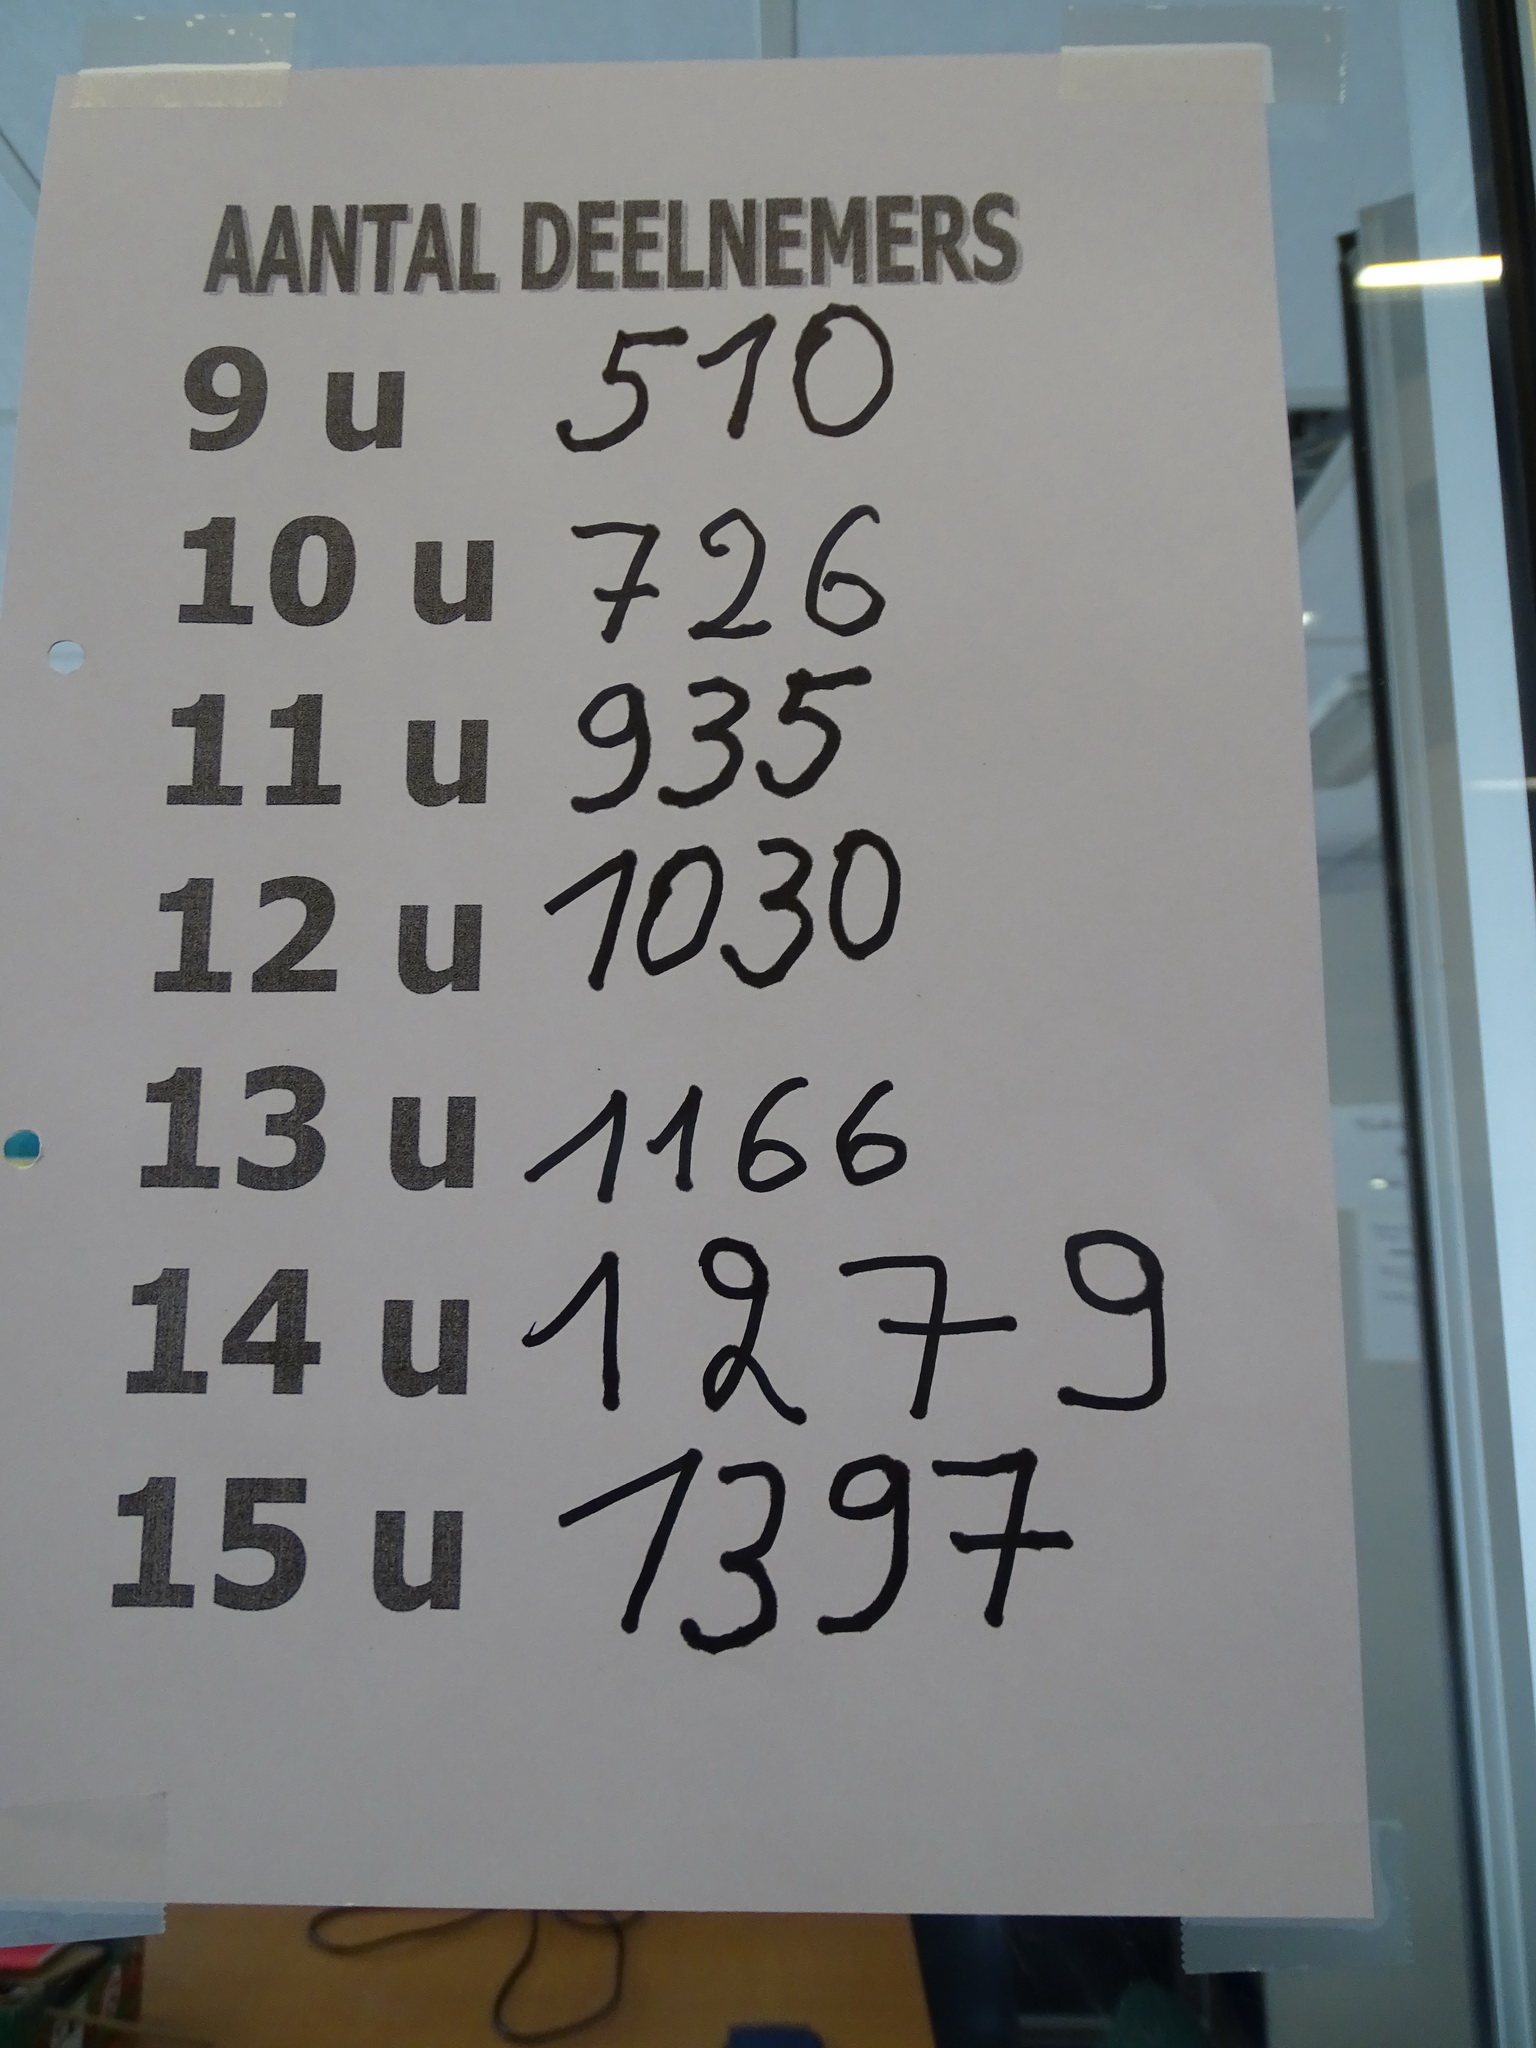 AANTAL DEELNEMERS
9 u 510
10 u 726
11 u 935
12 u 1030
13 u 1166
14 u 1279
15 u 1397